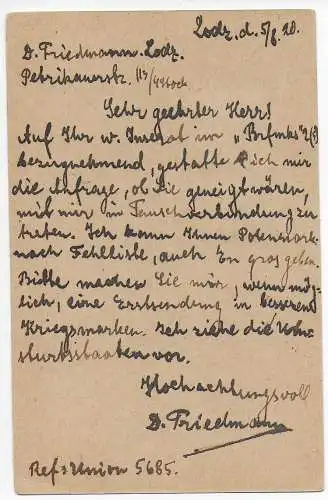 Lodz, d. 5/6. 20.
D. Friedmann - Lodz.
Petrikauerstr. 113/4 Stock
Sehr geehrter Herr!
Auf Ihr w. Inserat im „Brfmks"
bezugnehmend, gestatte ich mir
die Anfrage, ob Sie geneigt wären,
mit mir in Tauschverbindung zu
treten. Ich kann Ihnen Polenmark.
nach Fehlliste, auch En gros geben.
Bitte machen Sie mir, wenn mög-
lich, eine Erstsendung in besseren
Kriegsmarken. Ich ziehe die
vor.
Hochachtungsvoll
D. Friedmann
Ref: Union 5685.